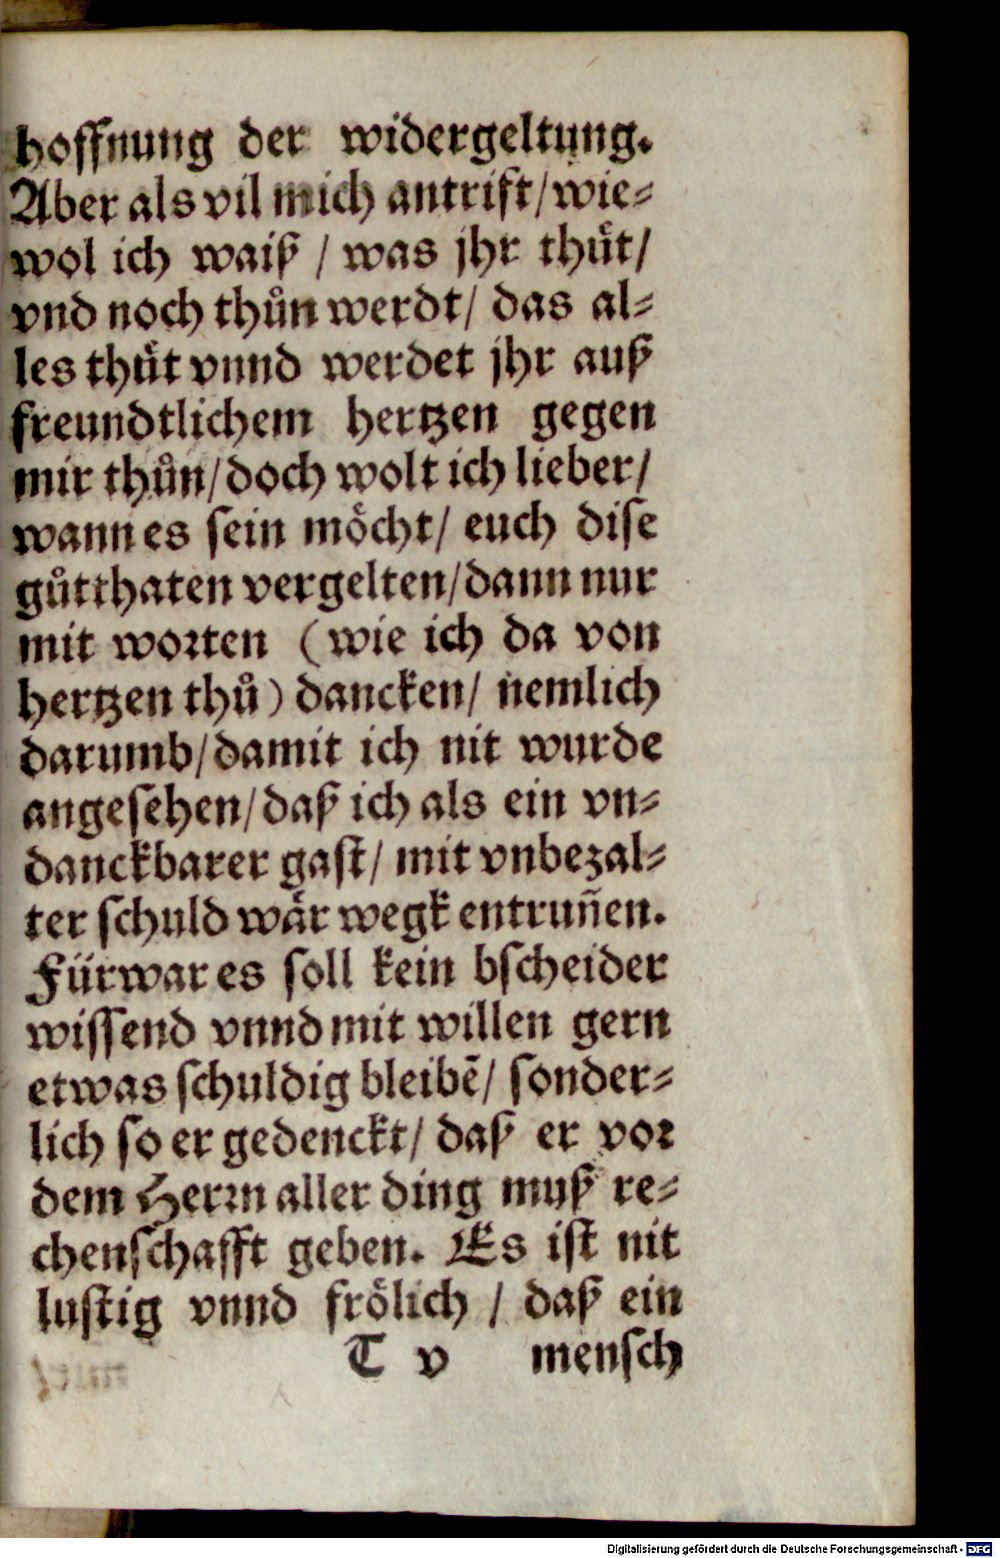 hoffnung der widergeltung.
Aber als vil mich antrift/ wie⸗
wol ich waiß / was jhr thuͤt/
vnd noch thůn werdt/ das al⸗
les thuͤt vnnd werdet jhr auß
freundtlichem hertzen gegen
mir thůn/ doch wolt ich lieber/
wann es sein moͤcht/ euch dise
gůtthaten vergelten/ dann nur
mit worten (wie ich da von
hertzen thů) dancken/ nemlich
darumb/ damit ich nit wurde
angesehen/ daß ich als ein vn⸗
danckbarer gast/ mit vnbezal⸗
ter schuld waͤr wegk entrun̄en.
Fürwar es soll kein bscheider
wissend vnnd mit willen gern
etwas schuldig bleibē/ sonder⸗
lich so er gedenckt/ daß er vor
dem Herrn aller ding muß re⸗
chenschafft geben. Es ist nit
lustig vnnd froͤlich / daß ein
T v mensch
Digitalisierung gefördert durch die Deutsche Forschungsgemeinschaft - DFG